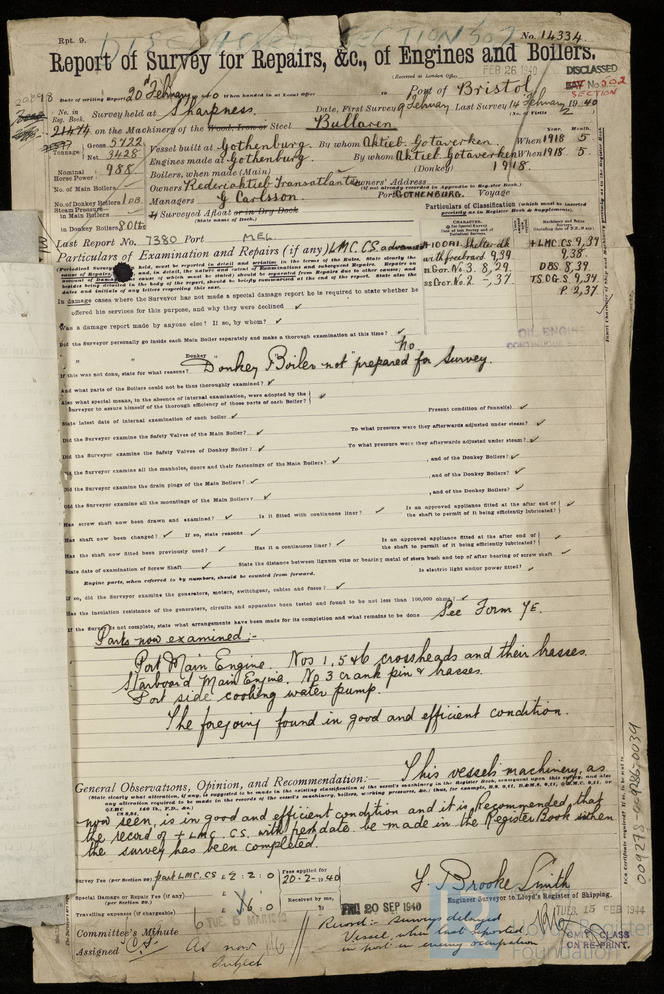 Rpt. 9.
No. 14334
Report of Survey for Repairs, &c., of Engines and Boilers.
(Received at London Office
FEB 26 1940
DISCLASSED
SECTION
Date of writing Report 20th February 1940 When handed in at Local Office
Port of Bristol
No. in Reg. Book.
Survey held at Sharpness
Date, First Survey 9 February Last Survey 14 February 1940
(No. of Visits 2)
21474 on the Machinery of the Wood, Iron or Steel Bullaren
Tonnage Gross 5722 Net 3428
Vessel built at Gothenburg By whom Aktieb. Gotaverken When 1918 5
Year. Month.
Engines made at Gothenburg By whom Aktieb Gotaverken When 1918 5
Nominal Horse Power 988
Boilers, when made (Main) (Donkey) 1918
No. of Main Boilers
Owners Rederiaktieb Transatlantic Owners' Address
(if not already recorded in Appendix to Register Book.)
No. of Donkey Boilers 1 DB
Managers G. Carlsson Port GOTHENBURG Voyage
Steam Pressure in Main Boilers
If Surveyed Afloat or in Dry Dock
(State name of Dock.)
in Donkey Boilers
Particulars of Classification (which must be inserted precisely as in Register Book & Supplements).
Last Report No. 7380 Port MEL
Particulars of Examination and Repairs (if any) LMC.CS.
+ LMC.CS. 9,34
9,38
DBS 8,39
TS.OG.S. 9,34
P. 2,37
In damage cases where the Surveyor has not made a special damage report he is required to state whether he
offered his services for this purpose, and why they were declined
Was a damage report made by anyone else? If so, by whom?
Did the Surveyor personally go inside each Main Boiler separately and make a thorough examination at this time?
" " Donkey " " " No
If this was not done, state for what reasons? Donkey Boiler not prepared for survey.
And what parts of the Boilers could not be thoroughly examined?
Also what special means, in the absence of internal examination, were adopted by the
Surveyor to assure himself of the thorough efficiency of those parts of each Boiler?
State latest date of internal examination of each boiler Present condition of funnel(s)
Did the Surveyor examine the Safety Valves of the Main Boiler? To what pressure were they afterwards adjusted under steam?
Did the Surveyor examine the Safety Valves of Donkey Boiler? To what pressure were they afterwards adjusted under steam?
Did the Surveyor examine all the manholes, doors and their fastenings of the Main Boilers? , and of the Donkey Boilers?
Did the Surveyor examine the drain plugs of the Main Boilers? , and of the Donkey Boilers?
Did the Surveyor examine all the mountings of the Main Boilers? , and of the Donkey Boilers?
Has screw shaft now been drawn and examined? Is it fitted with continuous liner? Is an approved appliance fitted at the after end of the shaft to permit of it being efficiently lubricated?
Has shaft now been changed? If so, state reasons
Has the shaft now fitted been previously used? Has it a continuous liner? Is an approved appliance fitted at the after end of the shaft to permit of it being efficiently lubricated?
State date of examination of Screw Shaft State the distance between lignum vitæ or bearing metal of stern bush and top of after bearing of screw shaft
Engine parts, when referred to by numbers, should be counted from forward. Is electric light and/or power fitted?
If so, did the Surveyor examine the generators, motors, switchgear, cables and fuses?
Has the insulation resistance of the generators, circuits and apparatus been tested and found to be not less than 100,000 ohms?
If the Survey is not complete, state what arrangements have been made for its completion and what remains to be done See Form 7E.
Parts now examined:-
Port Main Engine. Nos 1, 5 & 6 crossheads and their brasses.
Starboard Main Engine. No 3 crank pin & brasses.
Port side cooling water pump.
The foregoing found in good and efficient condition.
General Observations, Opinion, and Recommendation:- This vessels machinery, as
now seen, is in good and efficient condition and it is recommended that
the record of + LMC. CS. with fresh date be made in the Register Book when
the survey has been completed.
Survey Fee (per Section 29) part LMC.CS. £2 : 2 : 0
Fees applied for 20-2-1940
Special Damage or Repair Fee (if any) (per Section 29.)
Travelling expenses (if chargeable)
Received by me,
L Brooke Smith
Engineer Surveyor to Lloyd's Register of Shipping.
Committee's Minute
TUE 5 MAR 1940
FRI. 20 SEP 1940
TUES. 15 FEB 1944
Assigned As now
Subject
Record:- surveys delayed
Vessel when last reported
in port in enemy occupation
OMIT CLASS
ON RE-PRINT.
009278-009286-0039
Lloyd's Register
Foundation